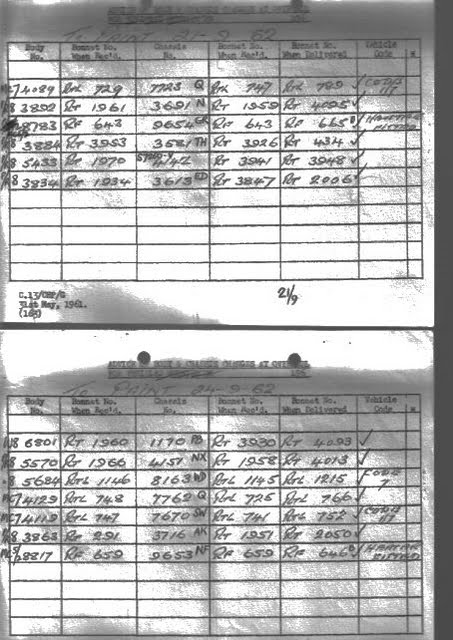 To PAINT 21-9-62
Body No. Bonnet No. When Rec'd. Chassis No. Bonnet No. When Rec'd. Bonnet No. When Delivered Vehicle Code *
4089 RTL 729 7723 Q RTL 747 RTL 789 ✓ CODE 17
3892 RT 1961 3691 N RT 1959 RT 4095 ✓
8783 RF 643 9654 GR RF 643 RF 665
3884 RT 3953 3581 TH RT 3926 RT 434 ✓
5433 RT 1970 RT 3941 RT 3948 ✓
3834 RT 1934 3613 ED RT 3847 RT 2006 ✓
C.13/CHF/G
31st May, 1961.
(165)
21/9
To PAINT 24-9-62
Body No. Bonnet No. When Rec'd. Chassis No. Bonnet No. When Rec'd. Bonnet No. When Delivered Vehicle Code *
6801 RT 1960 1170 PB RT 3930 RT 4093 ✓
5570 RT 1966 4157 NX RT 1958 RT 4013 ✓
5684 RTL 1146 8163 WD RTL 1145 RTL 1215 ✓ CODE 7
4129 RTL 748 7762 Q RTL 725 RTL 766 ✓
4119 RTL 747 7670 SW RTL 741 RTL 752 ✓ CODE 17
3863 RT 291 3716 AK RT 1951 RT 2050 ✓
8817 RF 659 9653 NF RF 659 RF 646